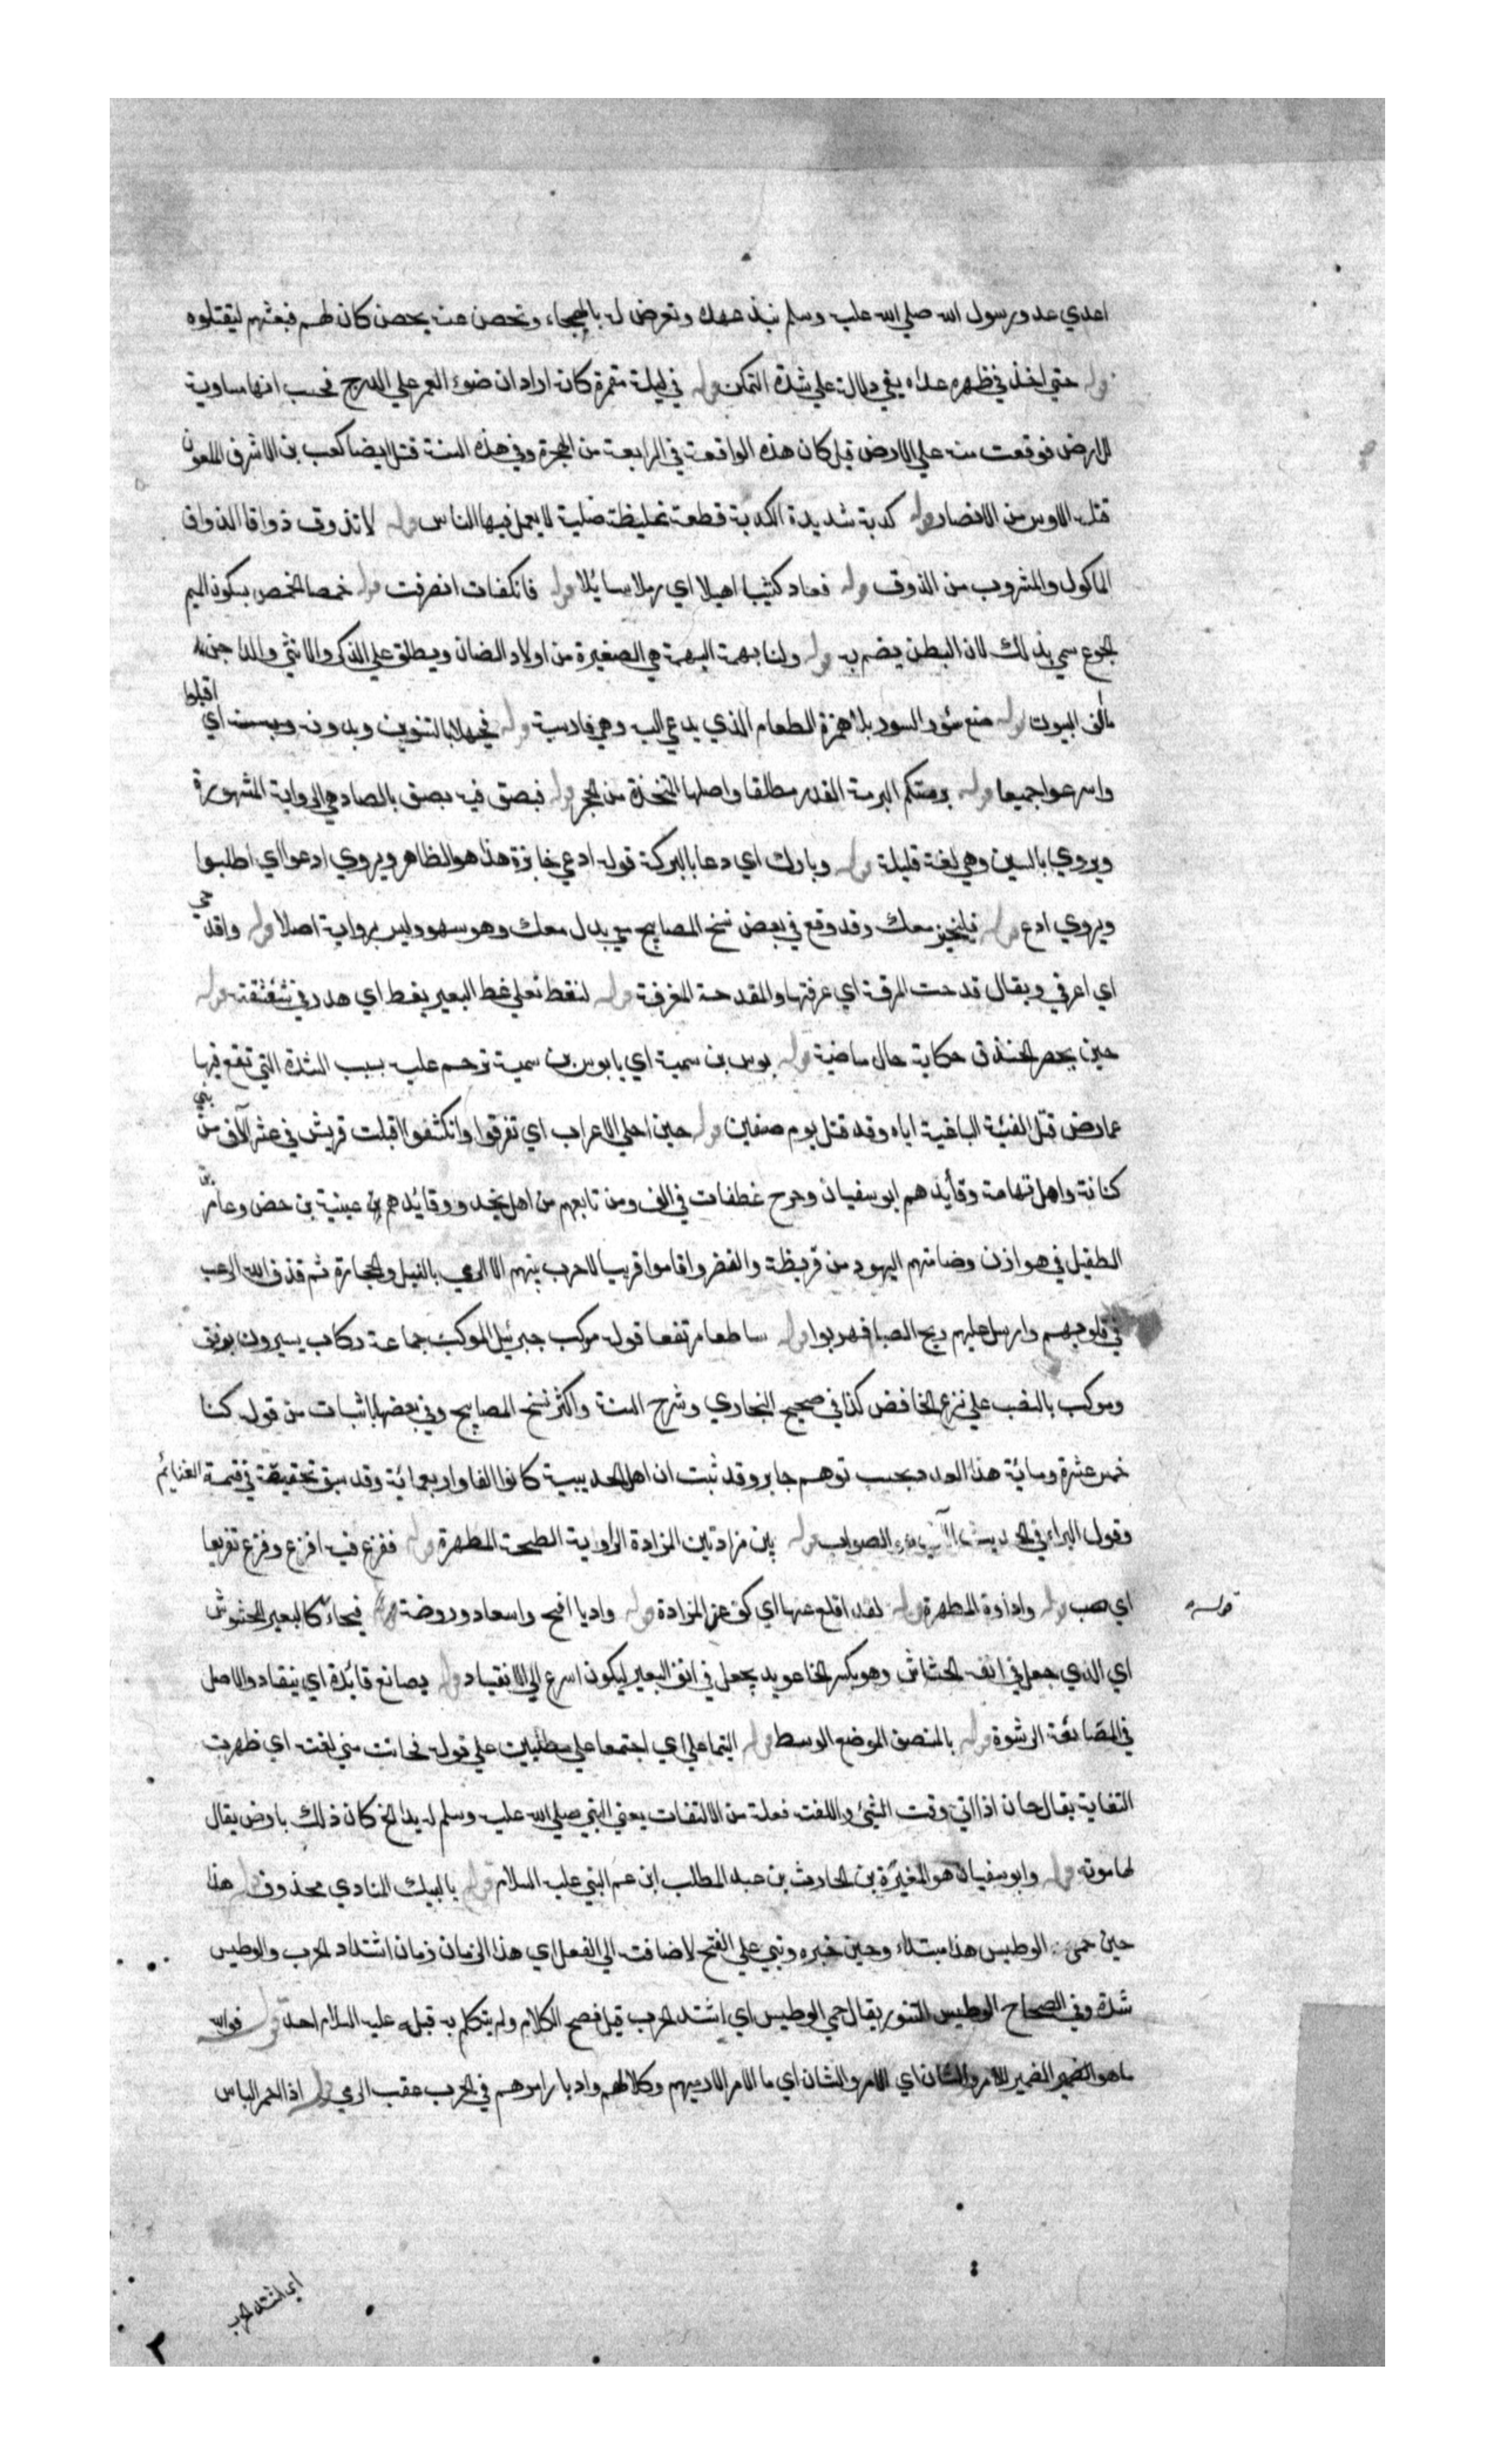 اعدي عدو رسول الله صلي الله عليه وسلم نبذ عهده وتعرض له بالهجاء وتحصن عنه بحصن كان لهم فبعثهم ليقتلوه
قوله حتي اخذ في ظهره عداه بفي دلالة علي شدة التمكن قوله في ليلة مقمرة كانه اراد ان ضوء القمر علي الدرج فحسب انها مساوية
للارض فوقعت منه علي الارض قيل كان هذه الواقعة في الرابعة من الهجرة وفي هذه السنة قتل ايضا كعب بن الاشرف الملعون
قتله الاوس من الانصار قوله كدية شديدة الكدية قطعة غليظة صلبة لا يعمل فيها الناس قوله لا نذوق ذواقا الذواق
الماكول والمشروب من الذوق قوله فعاد كثيبا اهيلا اي رملا سائلا قوله فانكفات انصرفت قوله خمصا الخمص بسكون الميم
الجوع سمي بذلك لان البطن يضم به قوله ولنا بهمة البهمة هي الصغيرة من اولاد الضان ويطلق علي الذكر والانثي والداجن ما
يالف البيوت قوله صنع سؤرا السور بلا همزة الطعام الذي يدعي اليه وهي فارسية قوله فحيهلا بالتنوين وبدونه اي اقبلوا
واسرعوا جميعا قوله برمتكم البرمة القدر مطلقا واصلها المتخذة من الحجر قوله فبصق فيه بصق بالصاد هي الرواية المشهورة
ويروي بالسين وهي لغة قليلة قوله وبارك اي دعا بالبركة قوله ادعي خابزة هذا هو الظاهر ويروي ادعوا اي اطلبوا
ويروي ادع قوله فلتخبز معك وقد وقع في بعض نسخ المصابيح معي بدل معك وهو سهو وليس برواية اصلا قوله واقدحي
اي اغرفي ويقال قدحت المرقة اي غرفتها والمقدحة المغرفة قوله لتغط تغلي غط البعير يغط اي هدر في شقشقته قوله
حين يحفر الخندق حكاية حال ماضية قوله بوس بن سمية اي يا بوس بن سمية ترحم عليه بسبب الشدة التي تقع فيها
عمار من قتل الفئة الباغية اياه وقد قتل يوم صفين قوله حين اجلي الاعراب اي تفرقوا وانكشفوا اقبلت قريش في عشر آلاف من بني
كنانة واهل تهامة وقايدهم ابو سفيان وخرج غطفان في الف ومن تابعهم من اهل نجد وقائدهم عيينة بن حصن وعامر بن
الطفيل في هوازن وضامتهم اليهود من قريظة والنضر واقاموا قريبا لا حرب بينهم الا الرمي بالنبل والحجارة ثم قذف الله الرعب
في قلوبهم وارسل عليهم ريح الصبا فهربوا قوله ساطعا مرتفعا قوله موكب جبرئيل الموكب جماعة ركاب يسيرون برفق
وموكب بالنصب علي نزع الخافض كذا في صحيح البخاري وشرح السنة واكثر نسخ المصابيح وفي بعضها باثبات من قوله كنا
خمس عشرة ومائة هذا العدد بحسب توهم جابر وقد ثبت ان اهل الحديبية كانوا الفا واربعمائة وقد سبق تحقيقه في قسمة الغنائم
وقول البراء في الحديث الصواب قوله بين مزادتين المزادة الراوية السطيحة المطهرة قوله ففزع فيه افزع وفزع تفزيعا
اي صب قوله واداوة المطهرة قوله لقد اقلع عنها اي كف عن المزادة قوله واديا افيح واسعا دوروضة قوله فجاء كالبعير المخشوش
قوله
اي الذي جعل في انفه الخشاش وهو بكسر الخا عويد يجعل في انف البعير ليكون اسرع الي الانقياد قوله يصانع قائده اي ينقاد والاصل
في المصانعة الرشوة قوله بالمنصف الموضع الوسط قوله التئما علي اي اجتمعا علي قوله فحانت مني لفتة اي ظهرت
التفاتة يقال حان اذا اتي وقت الشيئ واللفتة فعلة من الالتفات يعني النبي صلي الله عليه وسلم كان ذلك بارض يقال
لها موته قوله وابو سفيان هو المغيرة بن الحارث بن عبد المطلب ابن عم النبي عليه السلام قوله يا لبيك المنادي محذوف قوله هذا
حين حمي الوطيس هذا مبتداء وحين خبره وبني علي الفتح لاضافته الي الفعل اي هذا الزمان زمان اشتداد الحرب والوطيس
شدة وفي الصحاح الوطيس التنور يقال حمي الوطيس اي اشتد الحرب قيل فصح الكلام ولم يتكلم به قبله عليه السلام احد قوله فوالله
ما هو الضمير الضمير للامر والشان اي الامر والشان اي ما الامر الا رميهم وكلالهم وادبار امرهم في الحرب عقب الرمي قوله اذا احمر الباس
اي اشتد الحرب